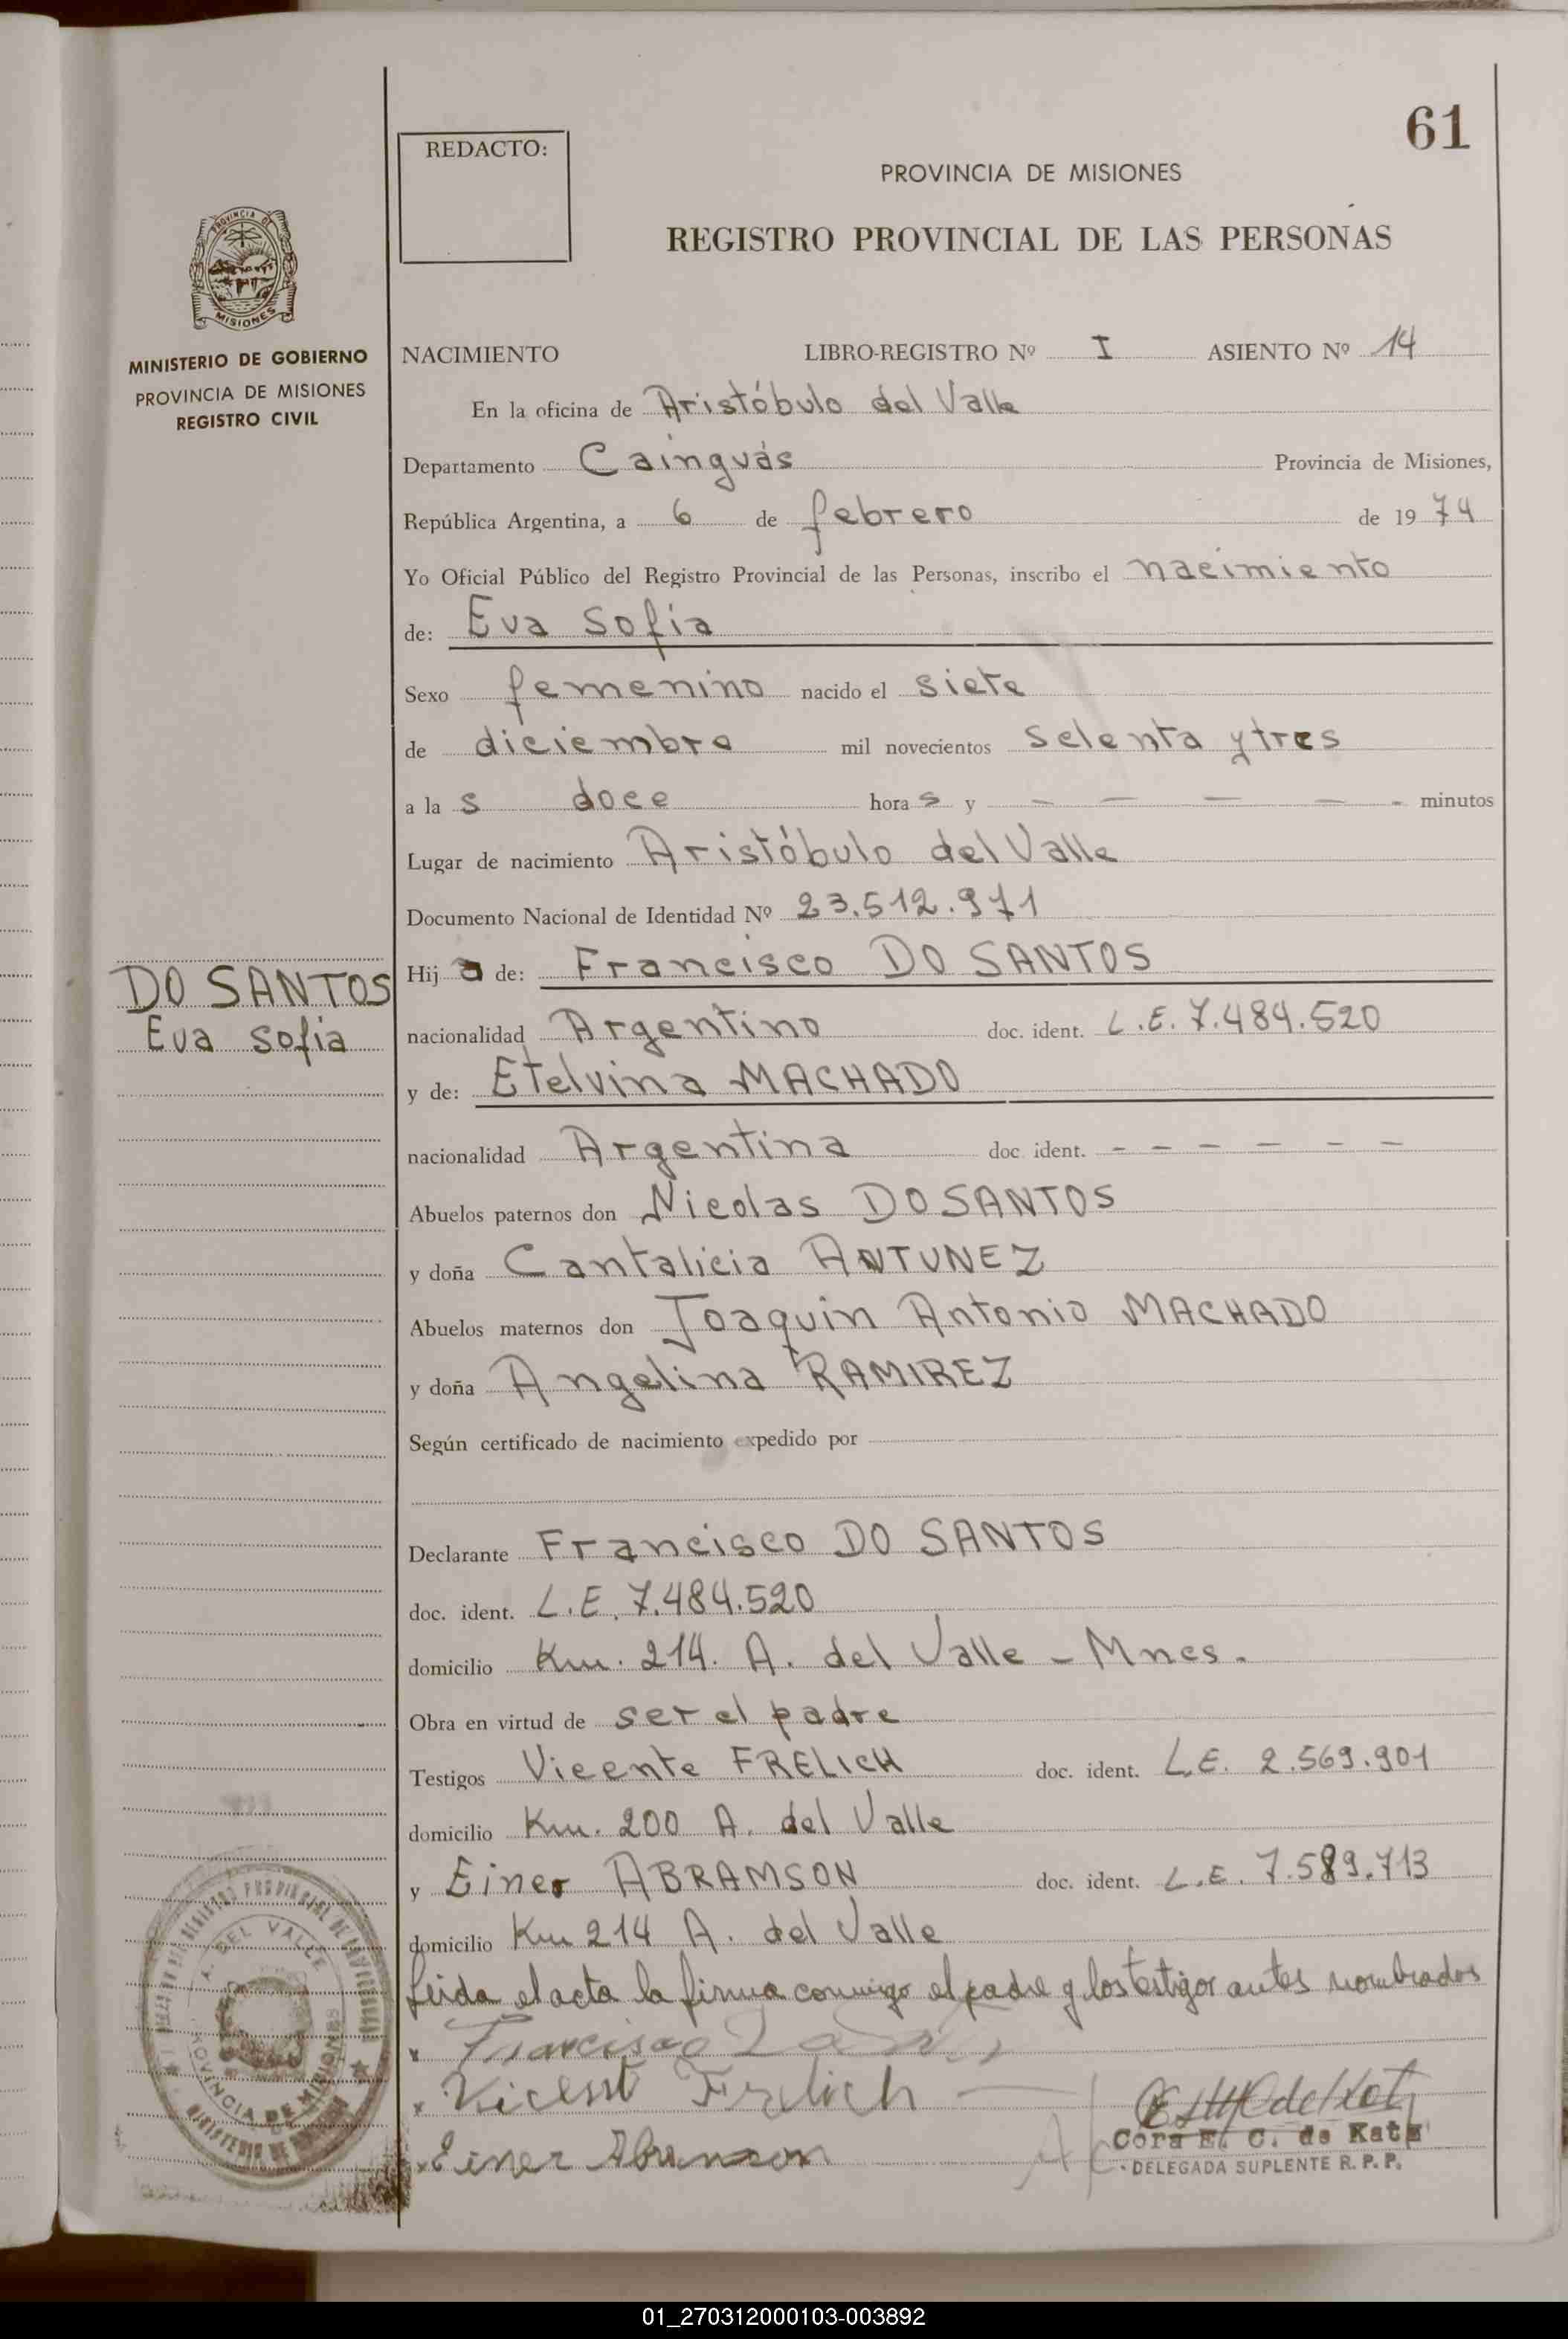 61
REDACTO:
PROVINCIA DE MISIONES
REGISTRO PROVINCIAL DE LAS PERSONAS
PROVINCIA DE
MISIONES
MINISTERIO DE GOBIERNO
PROVINCIA DE MISIONES
REGISTRO CIVIL
NACIMIENTO LIBRO-REGISTRO Nº I ASIENTO Nº 14
En la oficina de Aristóbulo del Valle
Departamento Cainguás Provincia de Misiones,
República Argentina, a 6 de febrero de 1974
Yo Oficial Público del Registro Provincial de las Personas, inscribo el nacimiento
de: Eva Sofia
Sexo femenino nacido el siete
de diciembre mil novecientos setenta y tres
a las doce horas y — — — — - minutos
Lugar de nacimiento Aristóbulo del Valle
Documento Nacional de Identidad Nº 23.512.971
DO SANTOS
Eva Sofia
Hija de: Francisco DO SANTOS
nacionalidad Argentino doc. ident. L.E. 7.484.520
y de: Etelvina MACHADO
nacionalidad Argentina doc. ident. - - - - - -
Abuelos paternos don Nicolas DO SANTOS
y doña Cantalicia ANTUNEZ
Abuelos maternos don Joaquin Antonio MACHADO
y doña Angelina RAMIREZ
Según certificado de nacimiento expedido por
Declarante Francisco DO SANTOS
doc. ident. L.E. 7.484.520
domicilio Km. 214. A. del Valle - Mnes.
Obra en virtud de ser el padre
Testigos Vicente FRELICH doc. ident. L.E. 2.569.901
domicilio Km. 200 A. del Valle
y Einer ABRAMSON doc. ident. L.E. 7.589.713
domicilio Km 214 A. del Valle
Leida el acta la firma conmigo el padre y los testigos antes nombrados
x Francisco
x Vicent Frelich
x Einer Abramson
Cora E. C. de Katz
DELEGADA SUPLENTE R. P. P.
A. DEL VALLE
PROVINCIA DE MISIONES
01_270312000103-003892